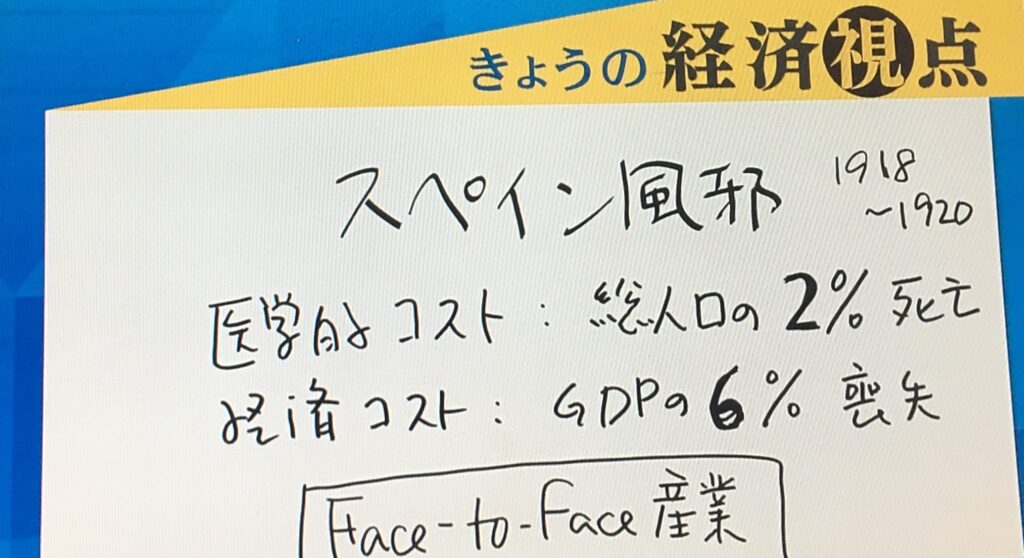 きょうの経済視点
スペイン風邪 1918
~1920
医学的コスト：総人口の2%死亡
経済コスト：GDPの6%喪失
Face-to-Face産業